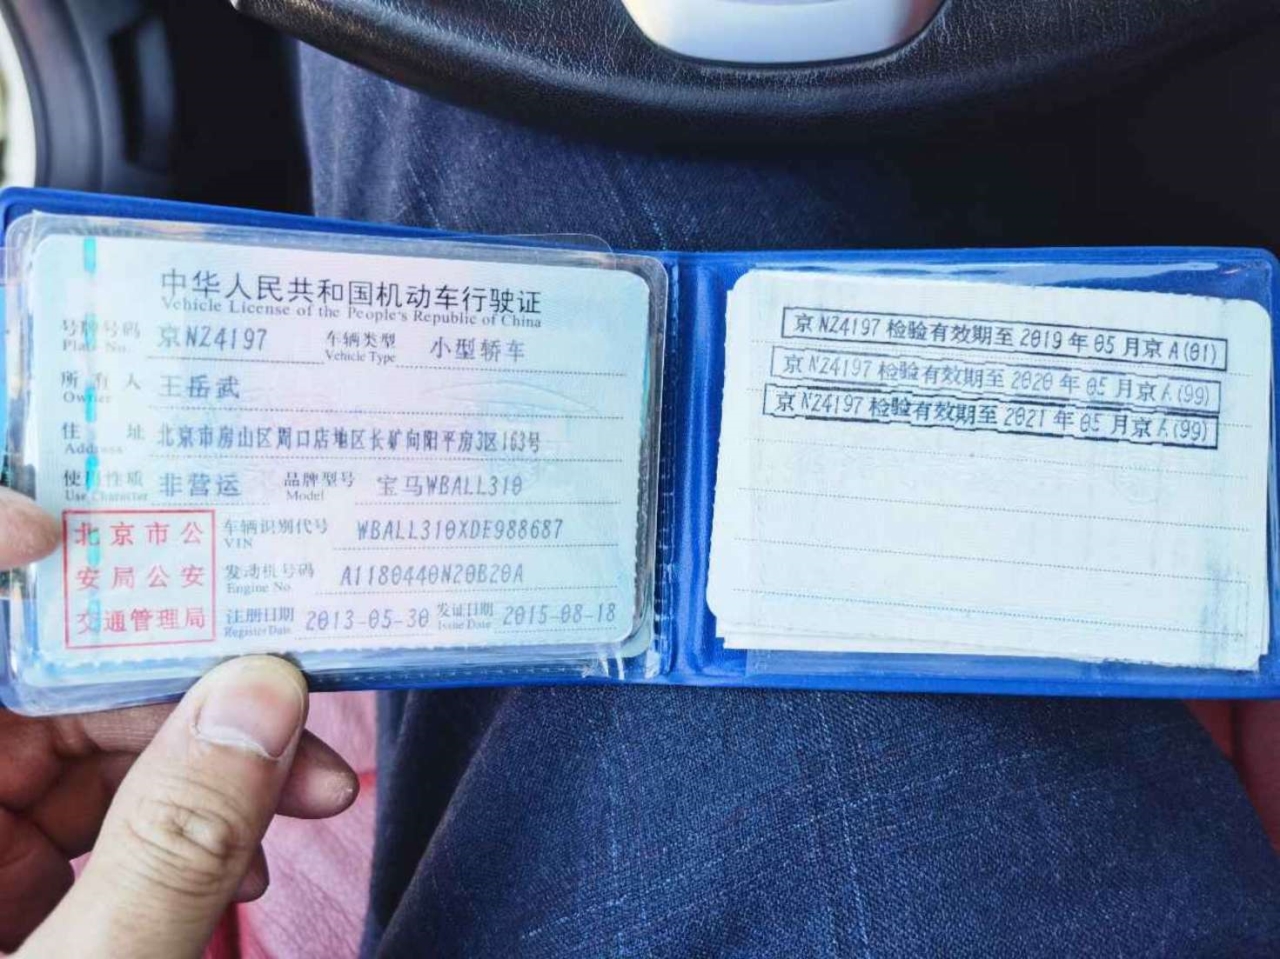 中华人民共和国机动车行驶证
Vehicle License of the People's Republic of China
号牌号码 京NZ4197 车辆类型 小型轿车
Plate No. Vehicle Type
所有人 王岳武
Owner
住址 北京市房山区周口店地区长矿向阳平房3区163号
Address
使用性质 非营运 品牌型号 宝马WBALL310
Use Character Model
车辆识别代号 WBALL310XDE988687
VIN
发动机号码 A1180440N20B20A
Engine No.
注册日期 2013-05-30 发证日期 2015-08-18
Register Date Issue Date
北京市公
安局公安
交通管理局
京NZ4197 检验有效期至 2019年05月京A(01)
京NZ4197 检验有效期至 2020年05月京A(99)
京NZ4197 检验有效期至 2021年05月京A(99)